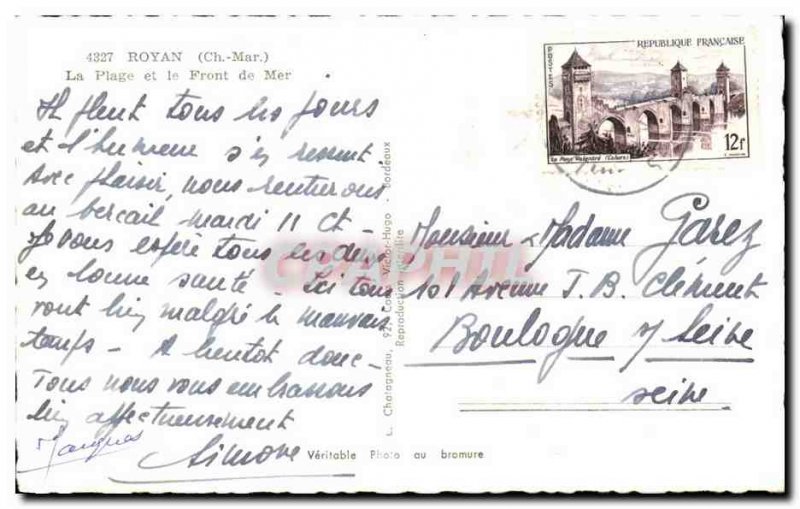 4327 ROYAN (Ch.-Mar.)
La Plage et le Front de Mer
Il pleut tous les jours
et l'humeur s'en ressent.
Avec plaisir, nous rentrerons
au bercail mardi 11 ct -
Je vous espère tous les deux
en bonne santé - Ici tous
vont bien malgré le mauvais
temps - A bientôt donc -
Tous nous vous embrassons
bien affectueusement
Simone
L. Chatagneau, 92, Cours Victor-Hugo - Bordeaux
Reproduction interdite
Véritable Photo au bromure
REPUBLIQUE FRANÇAISE
POSTES
Le Pont Valentré (Cahors)
12f
Monsieur & Madame Garez
101 Avenue J. B. Clément
Boulogne s/ Seine
Seine